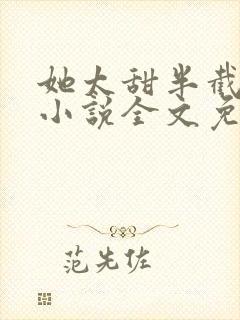 她太甜半截
小说全文免
范先佐